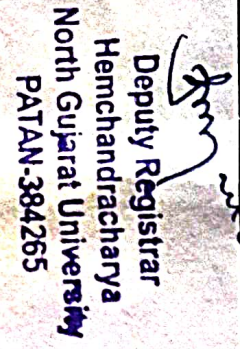 Deputy Registrar
Hemchandracharya
North Gujarat University
PATAN-384265